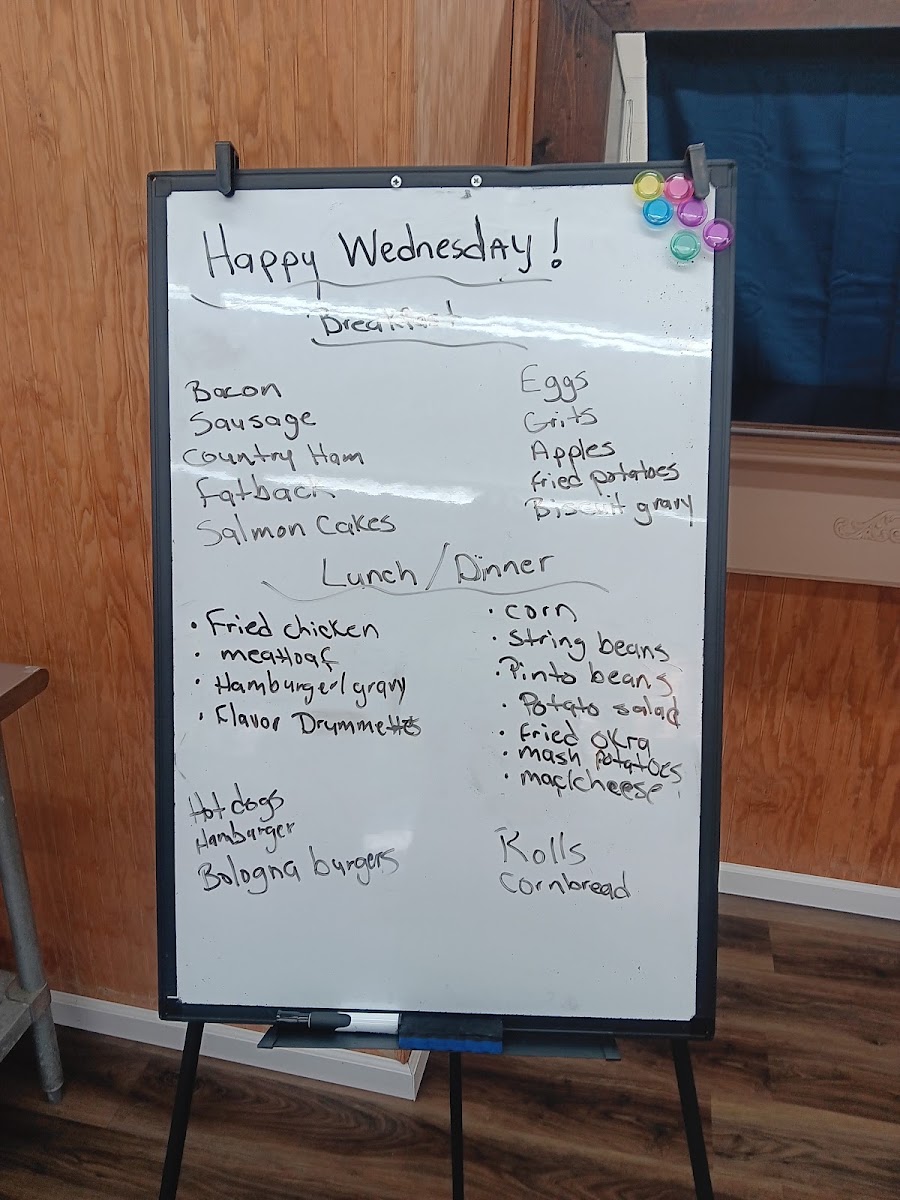 Happy Wednesday!
Breakfast
Bacon
Sausage
Country Ham
Fatback
Salmon Cakes
Eggs
Grits
Apples
Fried potatoes
Biscuit gravy
Lunch/Dinner
• Fried chicken
• meatloaf
• Hamburger/gravy
• Flavor Drummettes
• corn
• String beans
• Pinto beans
• Potato salad
• Fried okra
• mash potatoes
• mac/cheese
Hot dogs
Hamburger
Bologna burgers
Rolls
Cornbread